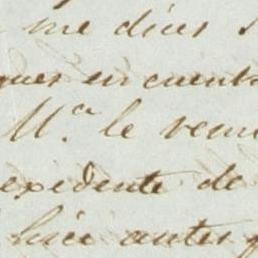 me dices
en cuenta
M.ª le
expediente de
hice antes